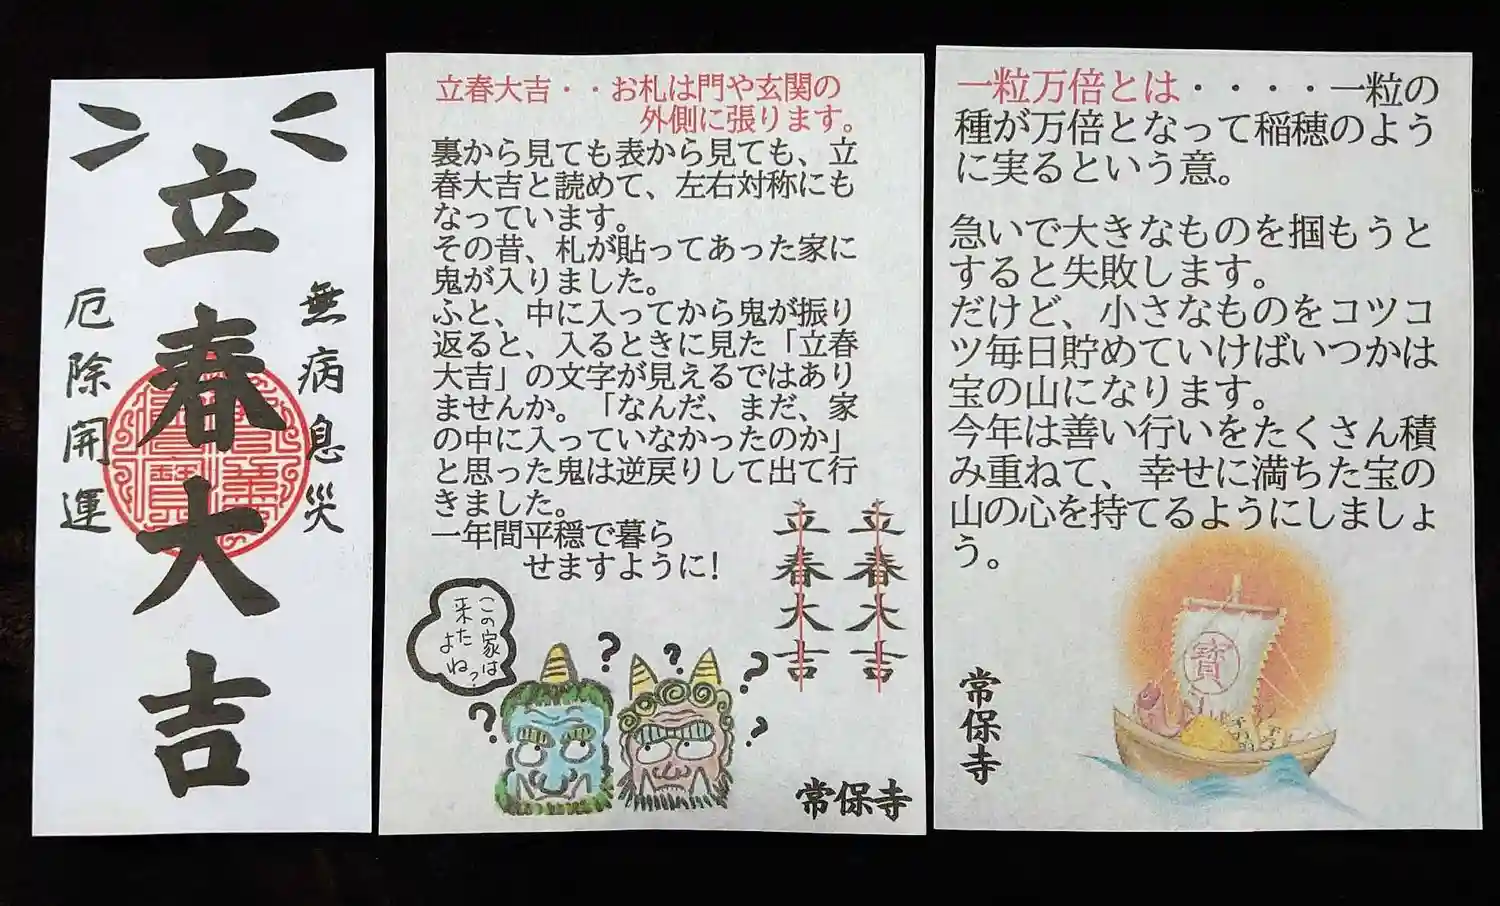 立春大吉
無病息災
厄除開運
立春大吉・・お札は門や玄関の
外側に張ります。
裏から見ても表から見ても、立
春大吉と読めて、左右対称にも
なっています。
その昔、札が貼ってあった家に
鬼が入りました。
ふと、中に入ってから鬼が振り
返ると、入るときに見た「立春
大吉」の文字が見えるではあり
ませんか。「なんだ、まだ、家
の中に入っていなかったのか」
と思った鬼は逆戻りして出て行
きました。
一年間平穏で暮ら
せますように!
立春大吉
立春大吉
この家は
来た
よね?
? ? ? ? ?
常保寺
一粒万倍とは・・・・一粒の
種が万倍となって稲穂のよう
に実るという意。
急いで大きなものを掴もうと
すると失敗します。
だけど、小さなものをコツコ
ツ毎日貯めていけばいつかは
宝の山になります。
今年は善い行いをたくさん積
み重ねて、幸せに満ちた宝の
山の心を持てるようにしましょ
う。
寶
常保寺